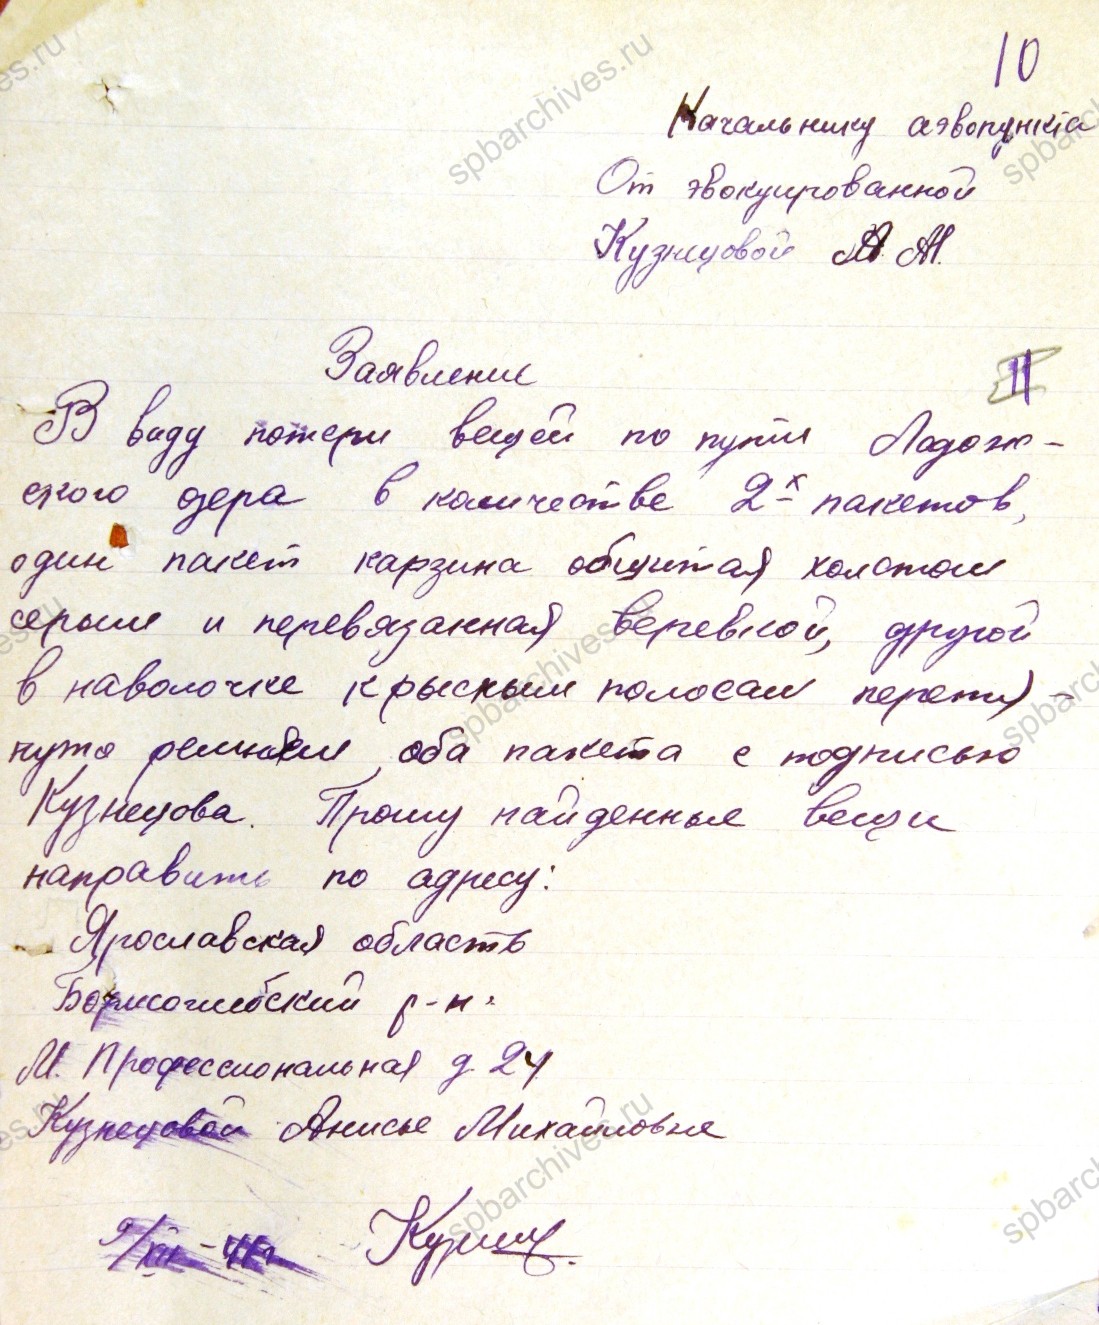 10
Начальнику аэвопункта
От эвокуированной
Кузнецовой А. М.
Заявление
II
В виду потери вещей по пути Ладож-
ского озера в количестве 2х пакетов,
один пакет карзина обшитая холстом
серым и перевязанная веревкой, другой
в наволочке крысным полосам перетя-
нуто ремнем, оба пакета с подписью
Кузнецова. Прошу найденные вещи
направить по адресу:
Ярославская область
Борисоглебский р-н.
М. Профессиональная д. 24
Кузнецовой Анисье Михайловне
9/XII-41г
spbarchives.ru